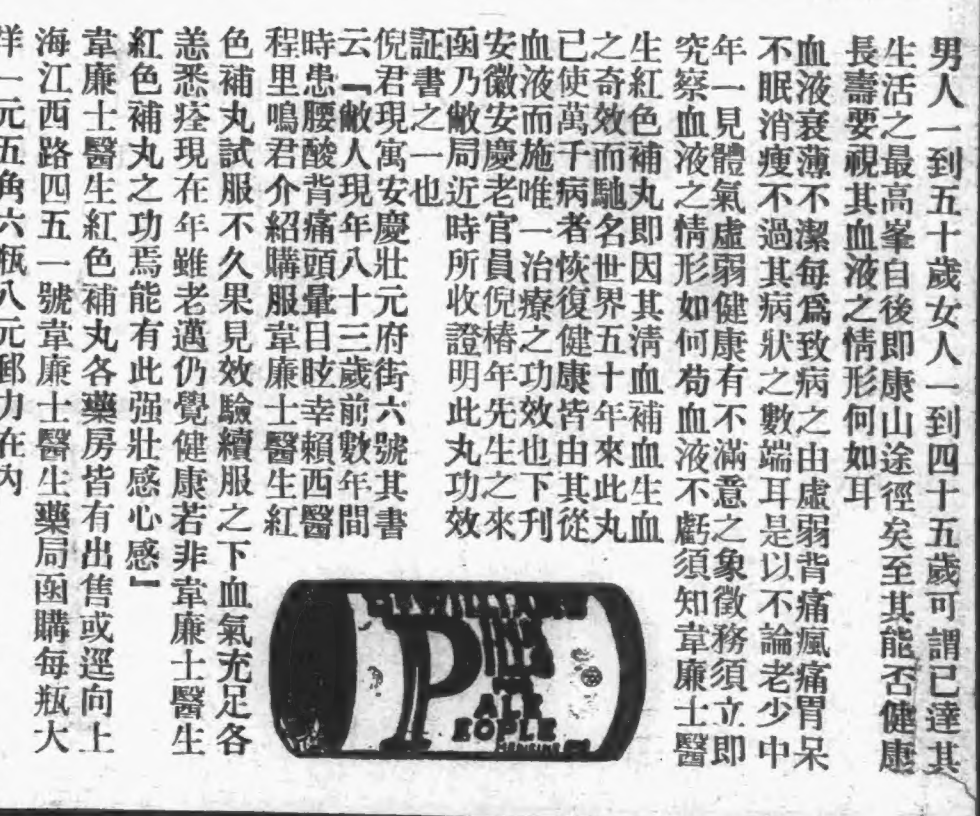 男人一到五十歲女人一到四十五歲可謂已達其
生活之最高峯自後即康山途徑矣至其能否健康
長壽要視其血液之情形何如耳
血液衰薄不潔每爲致病之由虛弱背痛瘋痛胃呆
不眠消瘦不過其病狀之數端耳是以不論老少中
年一見體氣虛弱健康有不滿意之象徵務須立即
究察血液之情形如何苟血液不虧須知韋廉士醫
生紅色補丸即因其淸血補血生血
之奇效而馳名世界五十年來此丸
已使萬千病者恢復健康皆由其從
血液而施唯一治療之功效也下刋
安徽安慶老官員倪椿年先生之來
函乃敝局近時所收證明此丸功效
証書之一也
倪君現寓安慶壯元府街六號其書
云『敝人現年八十三歲前數年間
時患腰酸背痛頭暈目眩幸賴西醫
程里鳴君介紹購服韋廉士醫生紅
色補丸試服不久果見效驗續服之下血氣充足各
恙悉痊現在年雖老邁仍覺健康若非韋廉士醫生
紅色補丸之功焉能有此强壯感心感』
韋廉士醫生紅色補丸各藥房皆有出售或逕向上
海江西路四五一號韋廉士醫生藥局函購每瓶大
洋一元五角六瓶八元郵力在內
DR.WILLIAMS
PINK
PILLS
FOR
PALE
PEOPLE
MEDICINE